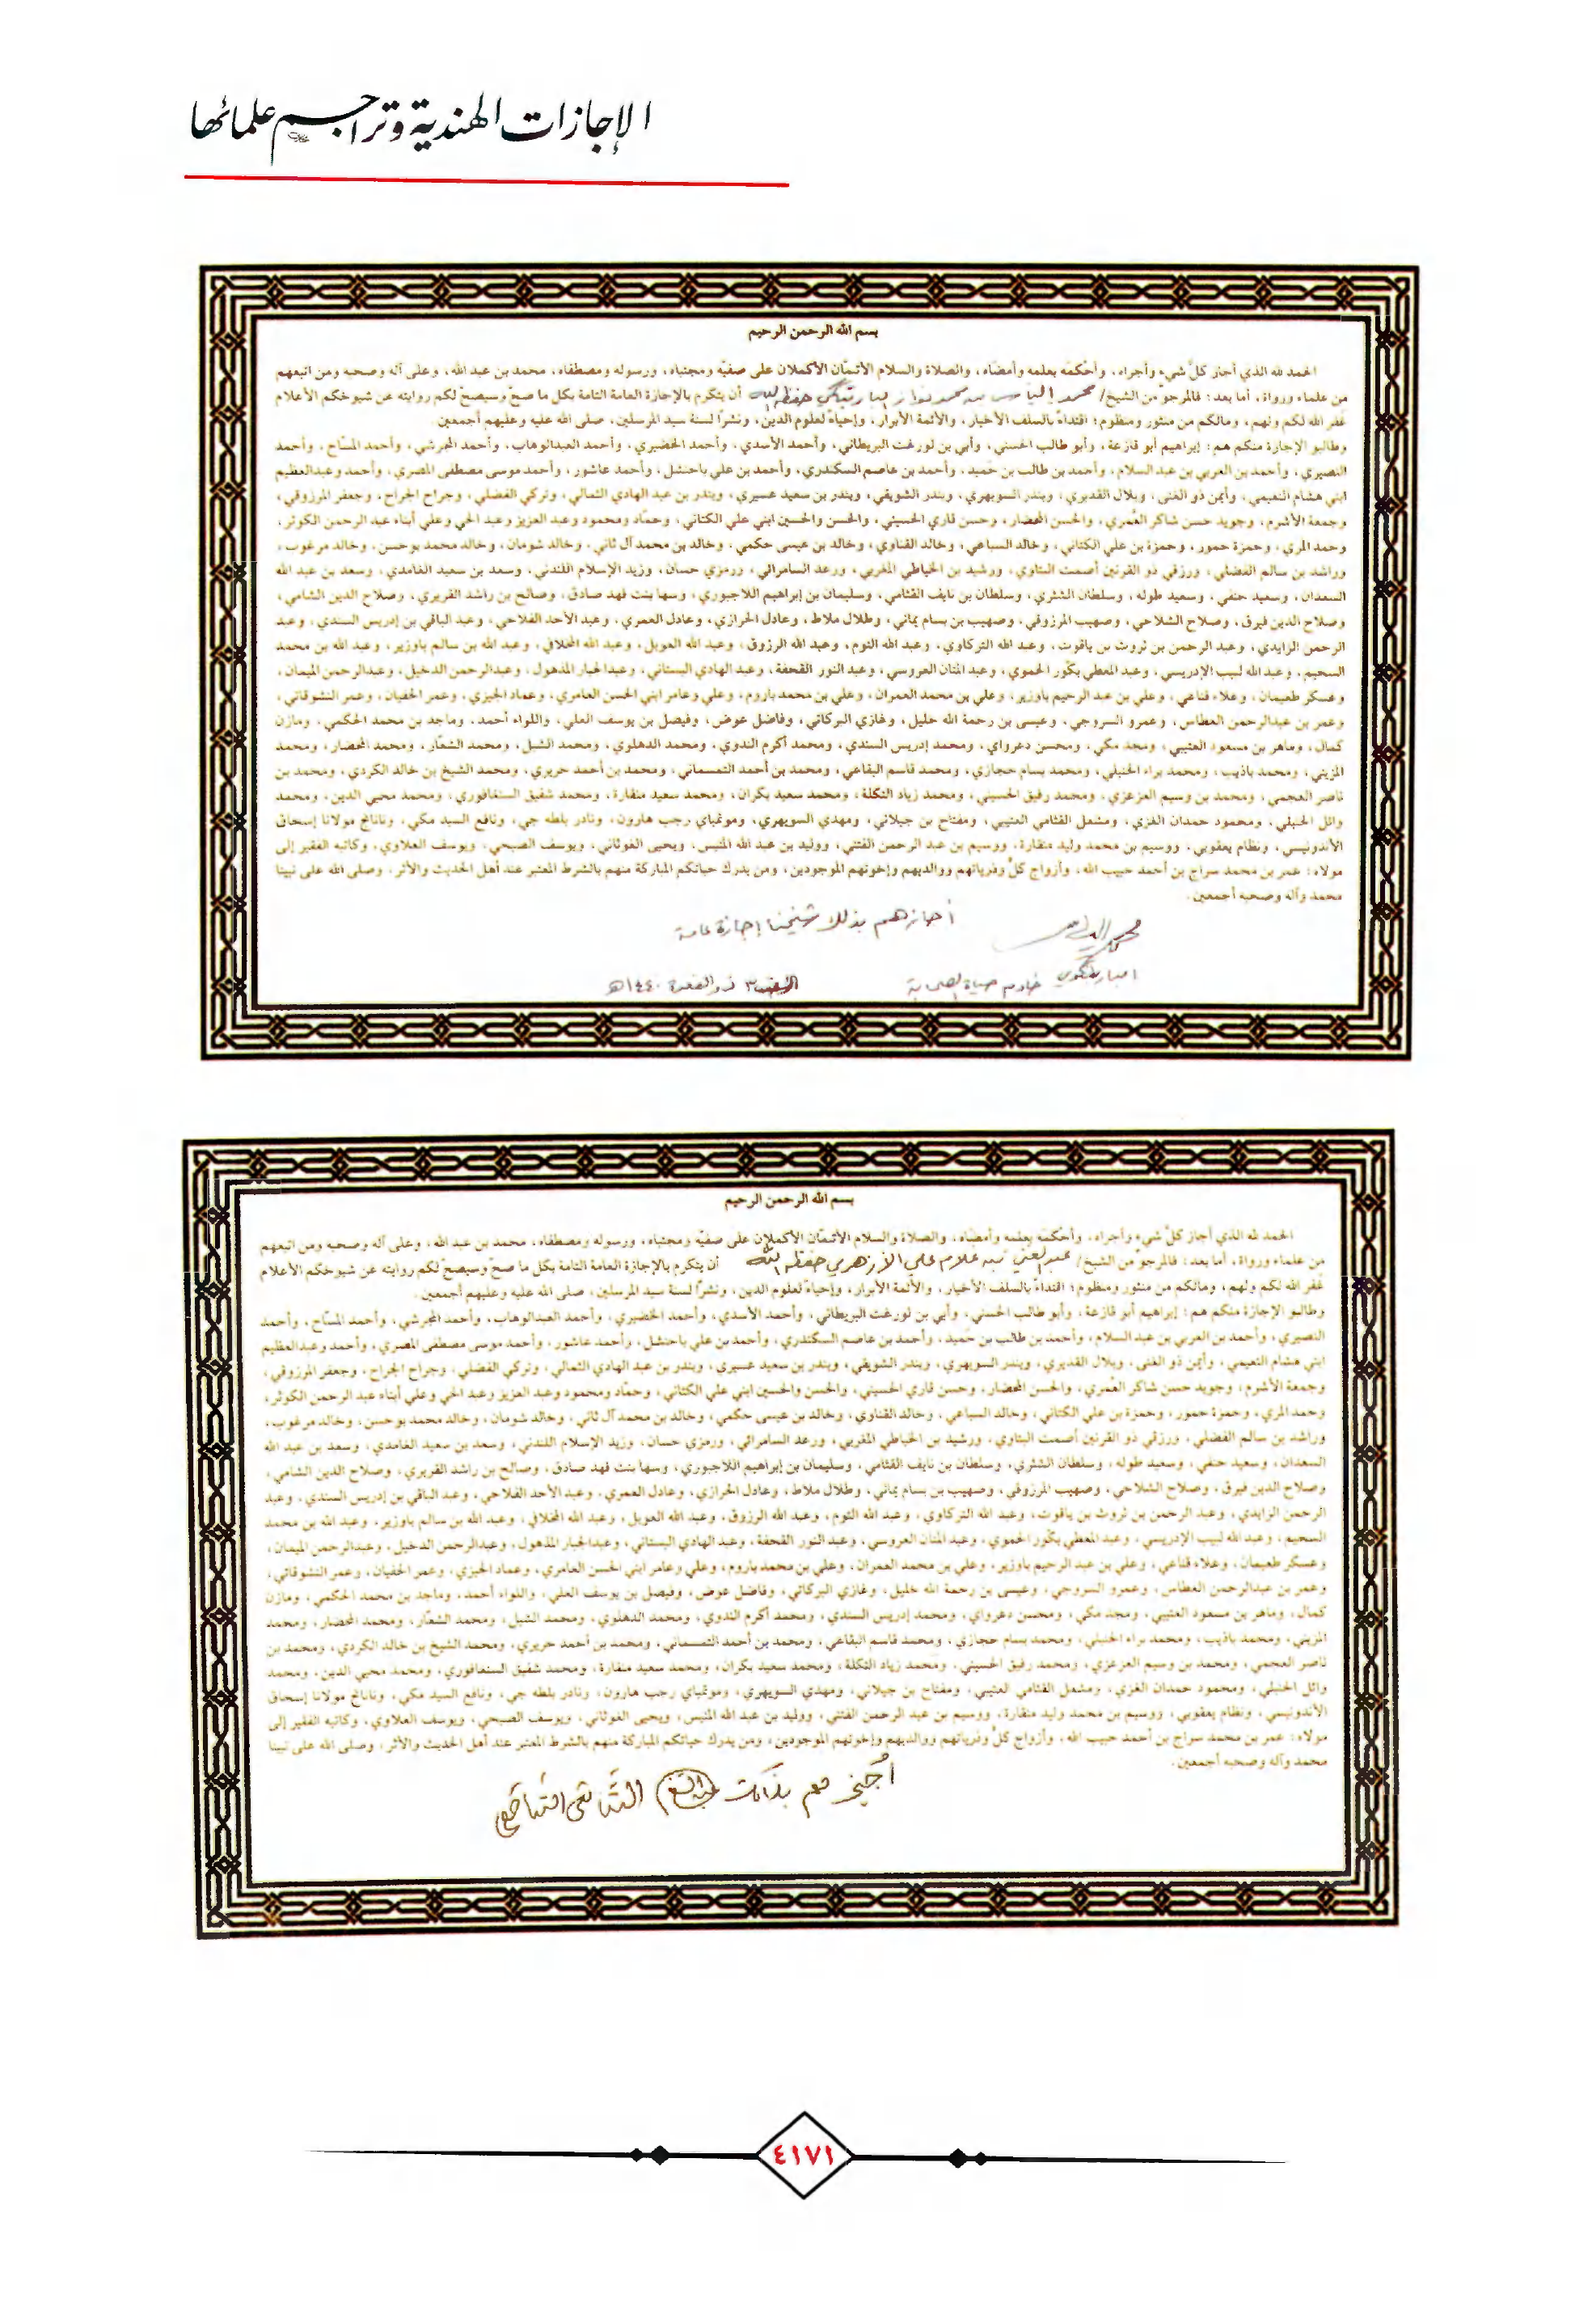 الإجازات الهندية وتراجم علمائها
بسم الله الرحمن الرحيم
الحمد لله الذي أجاز كلَّ شيء وأجراه، وأحكمَه بعلمه وأمضاه، والصلاة والسلام الأتمّان الأكملان على صفيّه ومجتباه، ورسوله ومصطفاه، محمد بن عبد الله، وعلى آله وصحبه ومن اتبعهم
من علماء ورواة، أما بعد: فالمرجوّ من الشيخ/ محمد إلياس بن محمد نواز البارہ بنكوي حفظه الله أن يتكرم بالإجازة العامة التامة بكل ما صحّ وسيصحّ لكم روايته عن شيوخكم الأعلام
غفر الله لكم ولهم، ومالكم من منثور ومنظوم؛ اقتداءً بالسلف الأخيار، والأئمة الأبرار، وإحياءً لعلوم الدين، ونشرًا لسنة سيد المرسلين، صلى الله عليه وعليهم أجمعين.
وطالبو الإجازة منكم هم: إبراهيم أبو قازعة، وأبو طالب الحسني، وأبي بن لورغت البريطاني، وأحمد الأسدي، وأحمد الخضيري، وأحمد العبدالوهاب، وأحمد المجرشي، وأحمد المسّاح، وأحمد
النصيري، وأحمد بن العربي بن عبد السلام، وأحمد بن طالب بن حميد، وأحمد بن عاصم السكندري، وأحمد بن علي باحنشل، وأحمد عاشور، وأحمد موسى مصطفى المصري، وأحمد وعبدالعظيم
ابني هشام النعيمي، وأيمن ذو الغنى، وبلال القديري، وبندر السويهري، وبندر الشويقي، وبندر بن سعيد عسيري، وبندر بن عبد الهادي الثمالي، وتركي الفضلي، وجراح الجراح، وجعفر المرزوقي،
وجمعة الأشرم، وجويد حسن شاكر العُمري، والحسن المحضار، وحسن قاري الحسيني، والحسن والحسين ابني علي الكتاني، وحمّاد ومحمود وعبد العزيز وعبد الحي وعلي أبناء عبد الرحمن الكوثر،
وحمد المري، وحمزة حمور، وحمزة بن علي الكتاني، وخالد السباعي، وخالد القناوي، وخالد بن عيسى حكمي، وخالد بن محمد آل ثاني، وخالد شومان، وخالد محمد بوحسن، وخالد مرغوب،
وراشد بن سالم الفضلي، ورزقي ذو القرنين أصمت البتاوي، ورشيد بن الخياطي المغربي، ورعد السامرائي، ورمزي حسان، وزيد الإسلام اللندني، وسعد بن سعيد الغامدي، وسعد بن عبد الله
السعدان، وسعيد حنفي، وسعيد طوله، وسلطان الشثري، وسلطان بن نايف القثامي، وسليمان بن إبراهيم اللاجبوري، وسها بنت فهد صادق، وصالح بن راشد القريري، وصلاح الدين الشامي،
وصلاح الدين فيرق، وصلاح الشلاحي، وصهيب المرزوقي، وصهيب بن بسام يماني، وطلال ملاط، وعادل الحرازي، وعادل العمري، وعبد الأحد الفلاحي، وعبد الباقي بن إدريس السندي، وعبد
الرحمن الزايدي، وعبد الرحمن بن ثروت بن ياقوت، وعبد الله التركاوي، وعبد الله التوم، وعبد الله الرزوق، وعبد الله العوبل، وعبد الله المخلافي، وعبد الله بن سالم باوزير، وعبد الله بن محمد
السحيم، وعبد الله لبيب الإدريسي، وعبد المعطي بكّور الحموي، وعبد المنان العروسي، وعبد النور القحفة، وعبد الهادي البستاني، وعبدالجبار المذهول، وعبدالرحمن الدخيل، وعبدالرحمن الميمان،
وعسكر طعيمان، وعلاء قناعي، وعلي بن عبد الرحيم باوزير، وعلي بن محمد العمران، وعلي بن محمد باروم، وعلي وعامر ابني الحسن العامري، وعماد الجيزي، وعمر الحفيان، وعمر النشوقاتي،
وعمر بن عبدالرحمن العطاس، وعمرو السروجي، وعيسى بن رحمة الله خليل، وغازي البركاتي، وفاضل عوض، وفيصل بن يوسف العلي، واللواء أحمد، وماجد بن محمد الحكمي، ومازن
كمال، وماهر بن مسعود العتيبي، ومجد مكي، ومحسن دعرواي، ومحمد إدريس السندي، ومحمد أكرم الندوي، ومحمد الدهلوي، ومحمد الشبل، ومحمد الشعّار، ومحمد المحضار، ومحمد
المزيني، ومحمد باذيب، ومحمد براء الحنبلي، ومحمد بسام حجازي، ومحمد قاسم البقاعي، ومحمد بن أحمد التمسماني، ومحمد بن أحمد حريري، ومحمد الشيخ بن خالد الكردي، ومحمد بن
ناصر العجمي، ومحمد بن وسيم العزعزي، ومحمد رفيق الحسيني، ومحمد زياد التكلة، ومحمد سعيد بكران، ومحمد سعيد منقارة، ومحمد شفيق السنغافوري، ومحمد محيي الدين، ومحمد
وائل الحنبلي، ومحمود حمدان الغزي، ومشعل القثامي العتيبي، ومفتاح بن جيلاني، ومهدي السويهري، ومونمباي رجب هارون، ونادر بلطه جي، ونافع السيد مكي، وناناخ مولانا إسحاق
الأندونيسي، ونظام يعقوبي، ووسيم بن محمد وليد منقارة، ووسيم بن عبد الرحمن الفتني، ووليد بن عبد الله المنيس، ويحيى الغوثاني، ويوسف الصبحي، ويوسف العلاوي، وكاتبه الفقير إلى
مولاه: عمر بن محمد سراج بن أحمد حبيب الله، وأزواج كلٍّ وذرياتهم ووالديهم وإخوتهم الموجودين، ومن يدرك حياتكم المباركة منهم بالشرط المعتبر عند أهل الحديث والأثر، وصلى الله على نبينا
محمد وآله وصحبه أجمعين.
أجازهم بذلك شيخنا إجازة عامة
محمد إلياس
خادم حياة الصحابة
٣ ذو القعدة ١٤٤٠هـ
بسم الله الرحمن الرحيم
الحمد لله الذي أجاز كلَّ شيء وأجراه، وأحكمَه بعلمه وأمضاه، والصلاة والسلام الأتمّان الأكملان على صفيّه ومجتباه، ورسوله ومصطفاه، محمد بن عبد الله، وعلى آله وصحبه ومن اتبعهم
من علماء ورواة، أما بعد: فالمرجوّ من الشيخ/ عبد الغني بن غلام علي الأزهري حفظه الله أن يتكرم بالإجازة العامة التامة بكل ما صحّ وسيصحّ لكم روايته عن شيوخكم الأعلام
غفر الله لكم ولهم، ومالكم من منثور ومنظوم؛ اقتداءً بالسلف الأخيار، والأئمة الأبرار، وإحياءً لعلوم الدين، ونشرًا لسنة سيد المرسلين، صلى الله عليه وعليهم أجمعين.
وطالبو الإجازة منكم هم: إبراهيم أبو قازعة، وأبو طالب الحسني، وأبي بن لورغت البريطاني، وأحمد الأسدي، وأحمد الخضيري، وأحمد العبدالوهاب، وأحمد المجرشي، وأحمد المسّاح، وأحمد
النصيري، وأحمد بن العربي بن عبد السلام، وأحمد بن طالب بن حميد، وأحمد بن عاصم السكندري، وأحمد بن علي باحنشل، وأحمد عاشور، وأحمد موسى مصطفى المصري، وأحمد وعبدالعظيم
ابني هشام النعيمي، وأيمن ذو الغنى، وبلال القديري، وبندر السويهري، وبندر الشويقي، وبندر بن سعيد عسيري، وبندر بن عبد الهادي الثمالي، وتركي الفضلي، وجراح الجراح، وجعفر المرزوقي،
وجمعة الأشرم، وجويد حسن شاكر العُمري، والحسن المحضار، وحسن قاري الحسيني، والحسن والحسين ابني علي الكتاني، وحمّاد ومحمود وعبد العزيز وعبد الحي وعلي أبناء عبد الرحمن الكوثر،
وحمد المري، وحمزة حمور، وحمزة بن علي الكتاني، وخالد السباعي، وخالد القناوي، وخالد بن عيسى حكمي، وخالد بن محمد آل ثاني، وخالد شومان، وخالد محمد بوحسن، وخالد مرغوب،
وراشد بن سالم الفضلي، ورزقي ذو القرنين أصمت البتاوي، ورشيد بن الخياطي المغربي، ورعد السامرائي، ورمزي حسان، وزيد الإسلام اللندني، وسعد بن سعيد الغامدي، وسعد بن عبد الله
السعدان، وسعيد حنفي، وسعيد طوله، وسلطان الشثري، وسلطان بن نايف القثامي، وسليمان بن إبراهيم اللاجبوري، وسها بنت فهد صادق، وصالح بن راشد القريري، وصلاح الدين الشامي،
وصلاح الدين فيرق، وصلاح الشلاحي، وصهيب المرزوقي، وصهيب بن بسام يماني، وطلال ملاط، وعادل الحرازي، وعادل العمري، وعبد الأحد الفلاحي، وعبد الباقي بن إدريس السندي، وعبد
الرحمن الزايدي، وعبد الرحمن بن ثروت بن ياقوت، وعبد الله التركاوي، وعبد الله التوم، وعبد الله الرزوق، وعبد الله العوبل، وعبد الله المخلافي، وعبد الله بن سالم باوزير، وعبد الله بن محمد
السحيم، وعبد الله لبيب الإدريسي، وعبد المعطي بكّور الحموي، وعبد المنان العروسي، وعبد النور القحفة، وعبد الهادي البستاني، وعبدالجبار المذهول، وعبدالرحمن الدخيل، وعبدالرحمن الميمان،
وعسكر طعيمان، وعلاء قناعي، وعلي بن عبد الرحيم باوزير، وعلي بن محمد العمران، وعلي بن محمد باروم، وعلي وعامر ابني الحسن العامري، وعماد الجيزي، وعمر الحفيان، وعمر النشوقاتي،
وعمر بن عبدالرحمن العطاس، وعمرو السروجي، وعيسى بن رحمة الله خليل، وغازي البركاتي، وفاضل عوض، وفيصل بن يوسف العلي، واللواء أحمد، وماجد بن محمد الحكمي، ومازن
كمال، وماهر بن مسعود العتيبي، ومجد مكي، ومحسن دعرواي، ومحمد إدريس السندي، ومحمد أكرم الندوي، ومحمد الدهلوي، ومحمد الشبل، ومحمد الشعّار، ومحمد المحضار، ومحمد
المزيني، ومحمد باذيب، ومحمد براء الحنبلي، ومحمد بسام حجازي، ومحمد قاسم البقاعي، ومحمد بن أحمد التمسماني، ومحمد بن أحمد حريري، ومحمد الشيخ بن خالد الكردي، ومحمد بن
ناصر العجمي، ومحمد بن وسيم العزعزي، ومحمد رفيق الحسيني، ومحمد زياد التكلة، ومحمد سعيد بكران، ومحمد سعيد منقارة، ومحمد شفيق السنغافوري، ومحمد محيي الدين، ومحمد
وائل الحنبلي، ومحمود حمدان الغزي، ومشعل القثامي العتيبي، ومفتاح بن جيلاني، ومهدي السويهري، ومونمباي رجب هارون، ونادر بلطه جي، ونافع السيد مكي، وناناخ مولانا إسحاق
الأندونيسي، ونظام يعقوبي، ووسيم بن محمد وليد منقارة، ووسيم بن عبد الرحمن الفتني، ووليد بن عبد الله المنيس، ويحيى الغوثاني، ويوسف الصبحي، ويوسف العلاوي، وكاتبه الفقير إلى
مولاه: عمر بن محمد سراج بن أحمد حبيب الله، وأزواج كلٍّ وذرياتهم ووالديهم وإخوتهم الموجودين، ومن يدرك حياتكم المباركة منهم بالشرط المعتبر عند أهل الحديث والأثر، وصلى الله على نبينا
محمد وآله وصحبه أجمعين.
٤١٧١